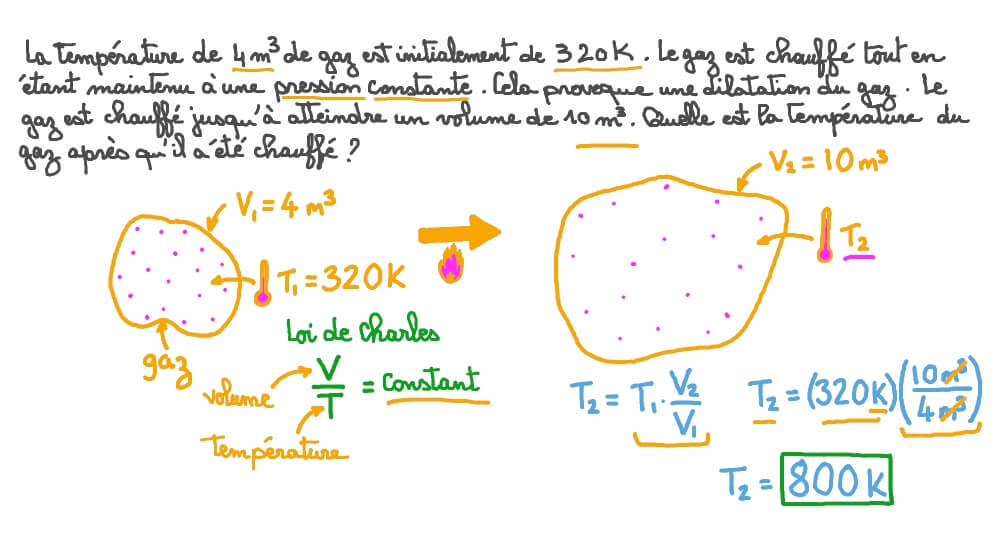 La température de 4 m³ de gaz est initialement de 320 K. Le gaz est chauffé tout en
étant maintenu à une pression constante. Cela provoque une dilatation du gaz. Le
gaz est chauffé jusqu'à atteindre un volume de 10 m³. Quelle est la température du
gaz après qu'il a été chauffé ?
V₁ = 4 m³
T₁ = 320 K
gaz
V₂ = 10 m³
T₂
Loi de Charles
V/T = constant
volume
température
T₂ = T₁ · V₂/V₁
T₂ = (320 K)(10 m³/4 m³)
T₂ = 800 K